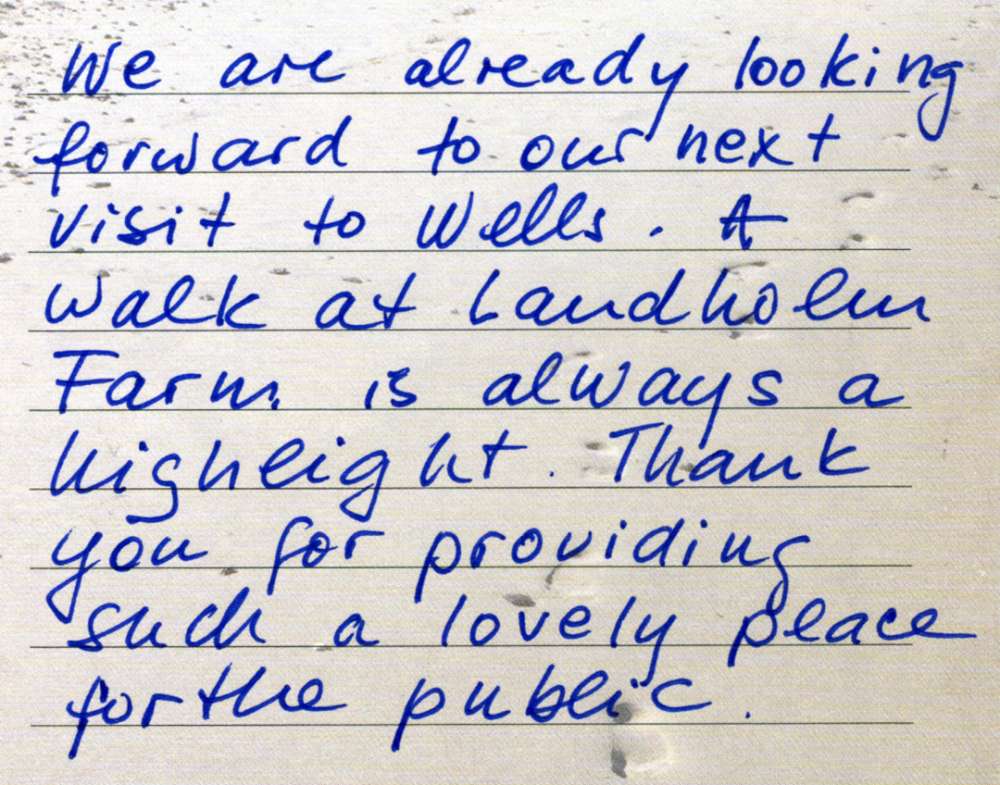 We are already looking
forward to our next
visit to Wells. A
walk at Landholm
Farm is always a
highlight. Thank
you for providing
such a lovely place
for the public.